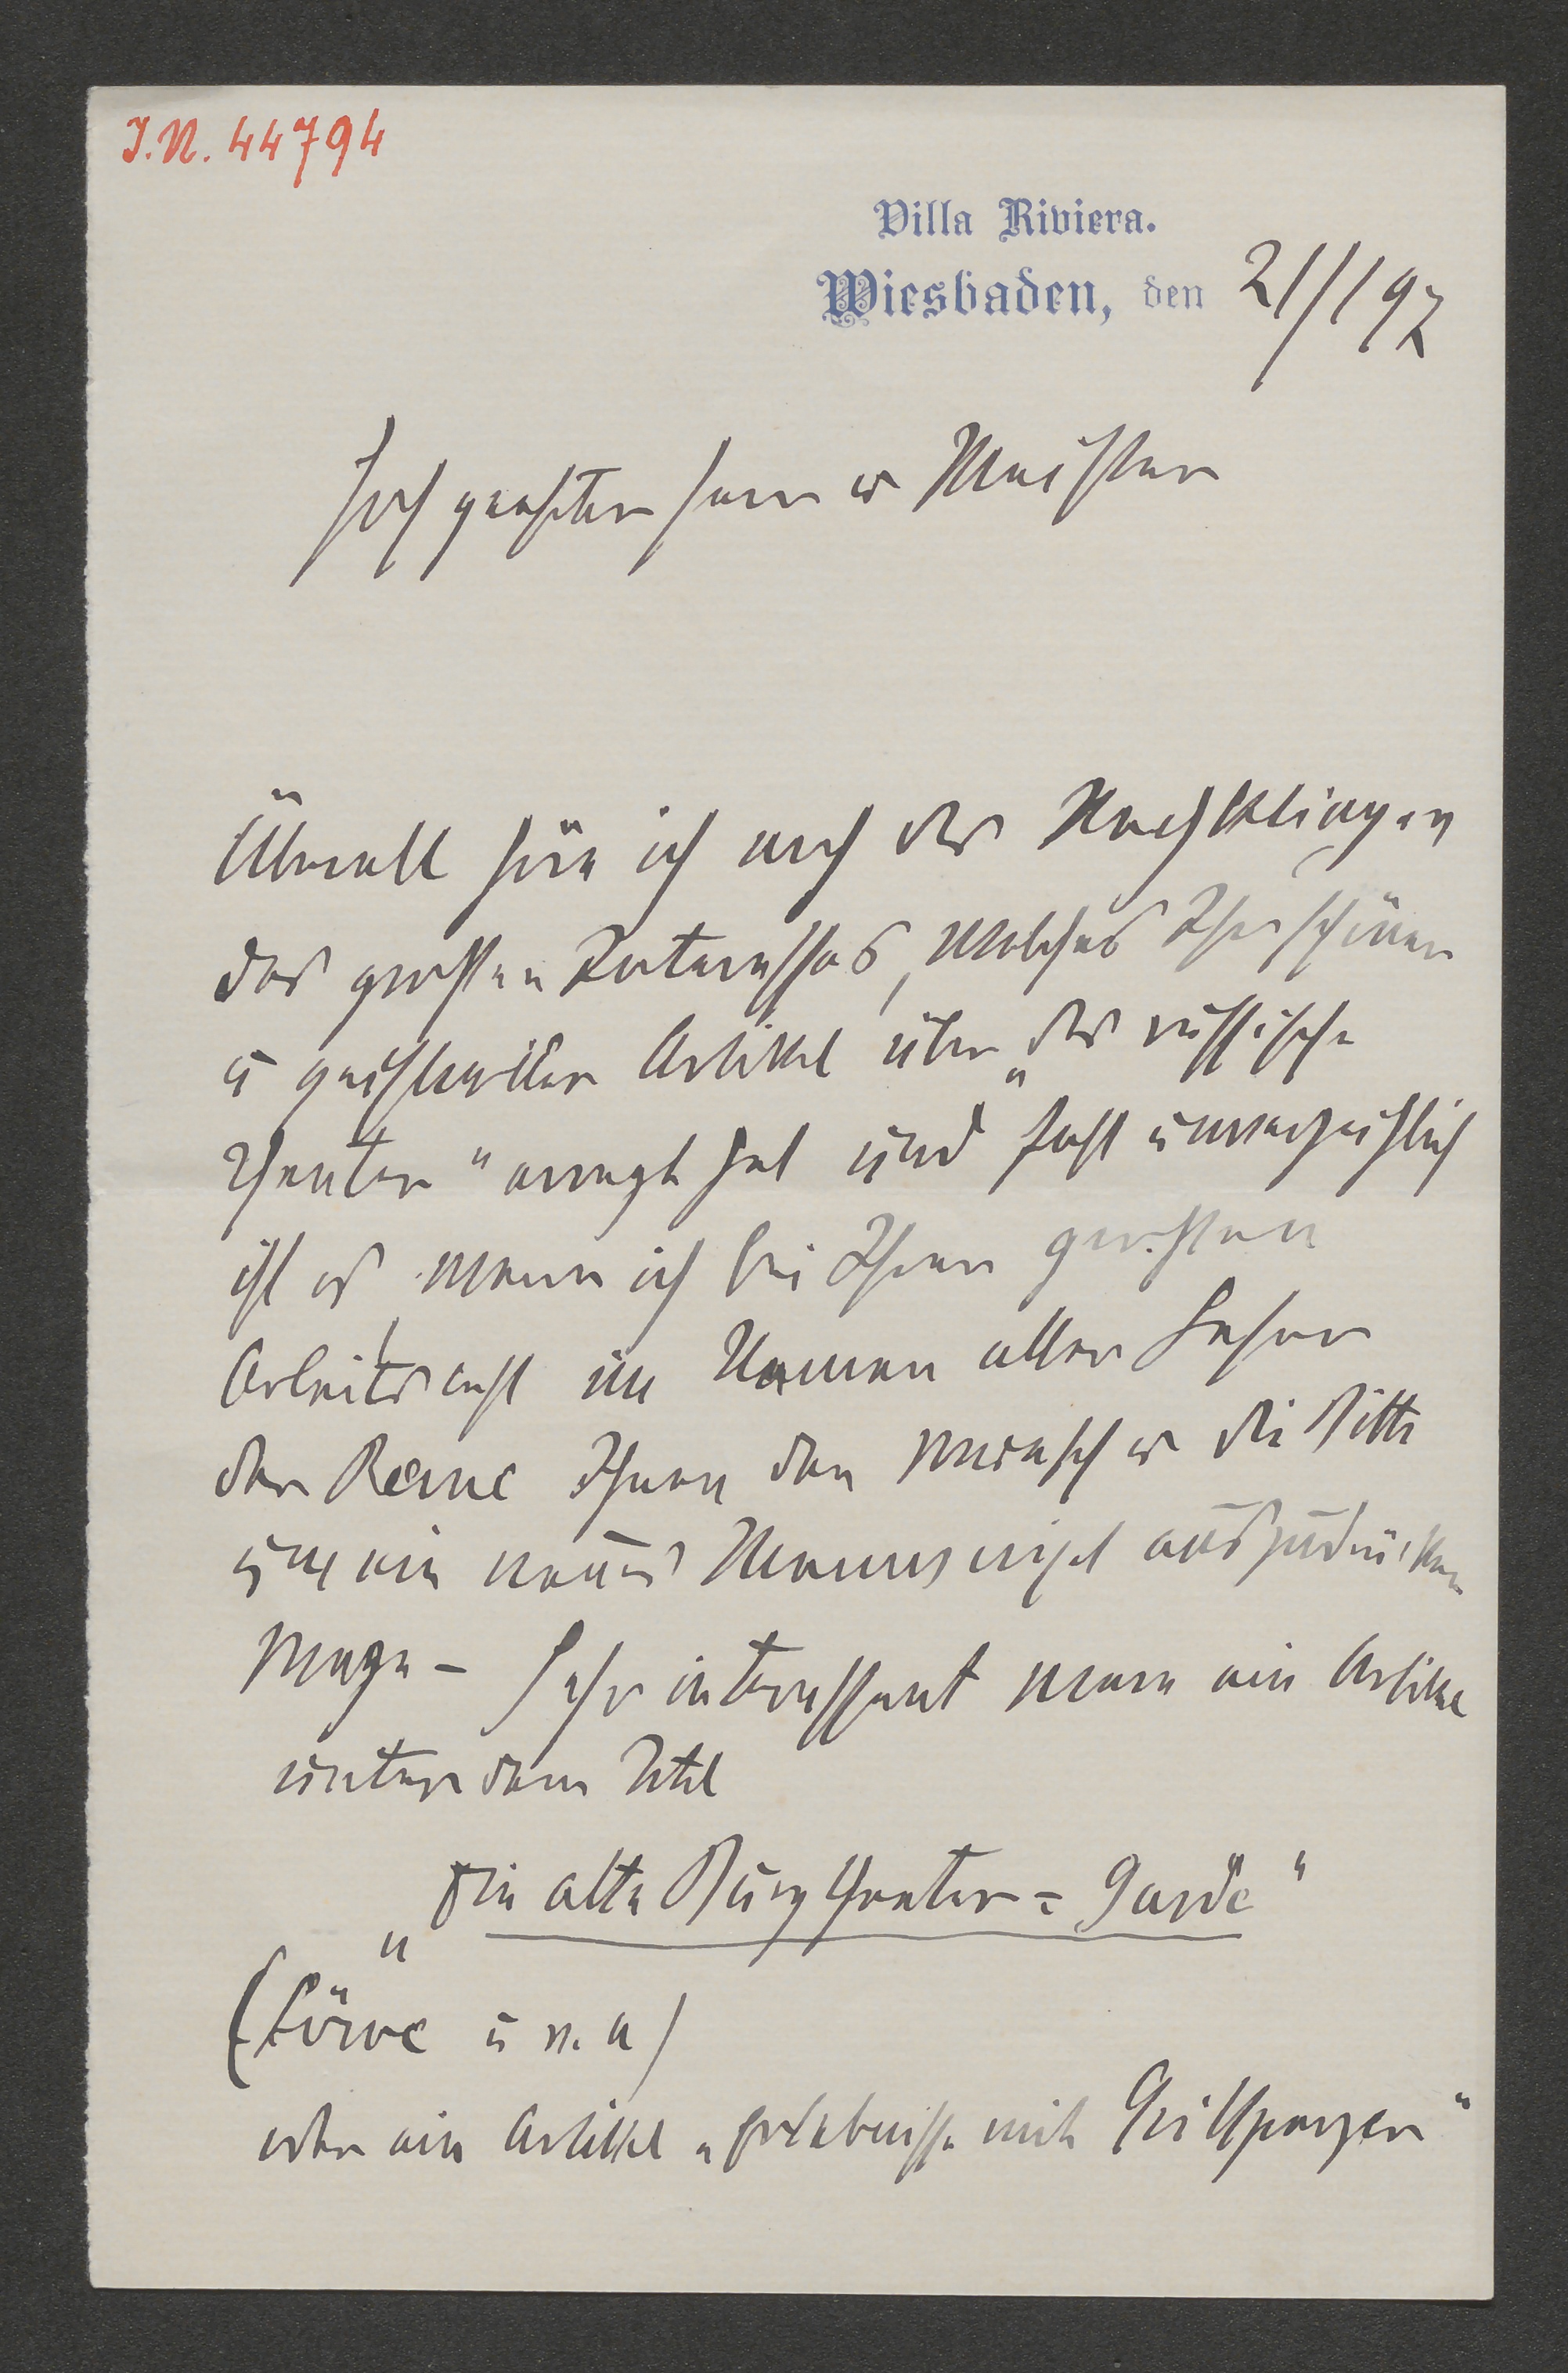 J.N. 44794
Villa Riviera.
Wiesbaden, den 21/1 97
Hochgeehrter Herr u Meister
Überall höre ich noch das Nachklingen
des großen Interesses, welches Ihr schöner
u geistvoller Artikel über „das russische
Theater" erregt hat und fast unverzeihlich
ist es, wenn ich bei Ihrer großen
Arbeitslast im Namen aller Leser
der Revue Ihnen den Wunsch u die Bitte
um ein neues Manuscript auszudrücken
wage – Sehr interessant wäre ein Artikel
unter dem Titel
„Die alte Burgtheater-Garde"
(Löwe u. a)
oder ein Artikel „Erlebnisse mit Grillparzer"